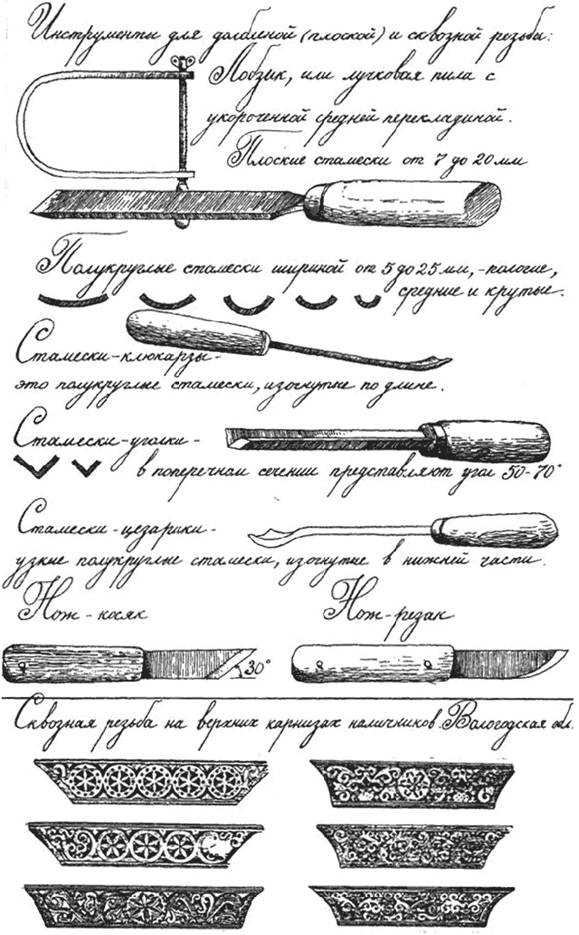 Инструменты для долбленой (плоской) и сквозной резьбы:
Лобзик, или лучковая пила с
укороченной средней перекладиной.
Плоские стамески от 7 до 20 мм
Полукруглые стамески шириной от 5 до 25 мм, - пологие,
средние и крутые.
Стамески-клюкарзы-
это полукруглые стамески, изогнутые по длине.
Стамески-уголки-
в поперечном сечении представляют угол 50-70°
Стамески-цезарики-
узкие полукруглые стамески, изогнутые в нижней части.
Нож-косяк
Нож-резак
30°
Сквозная резьба на верхних карнизах наличников. Вологодская обл.